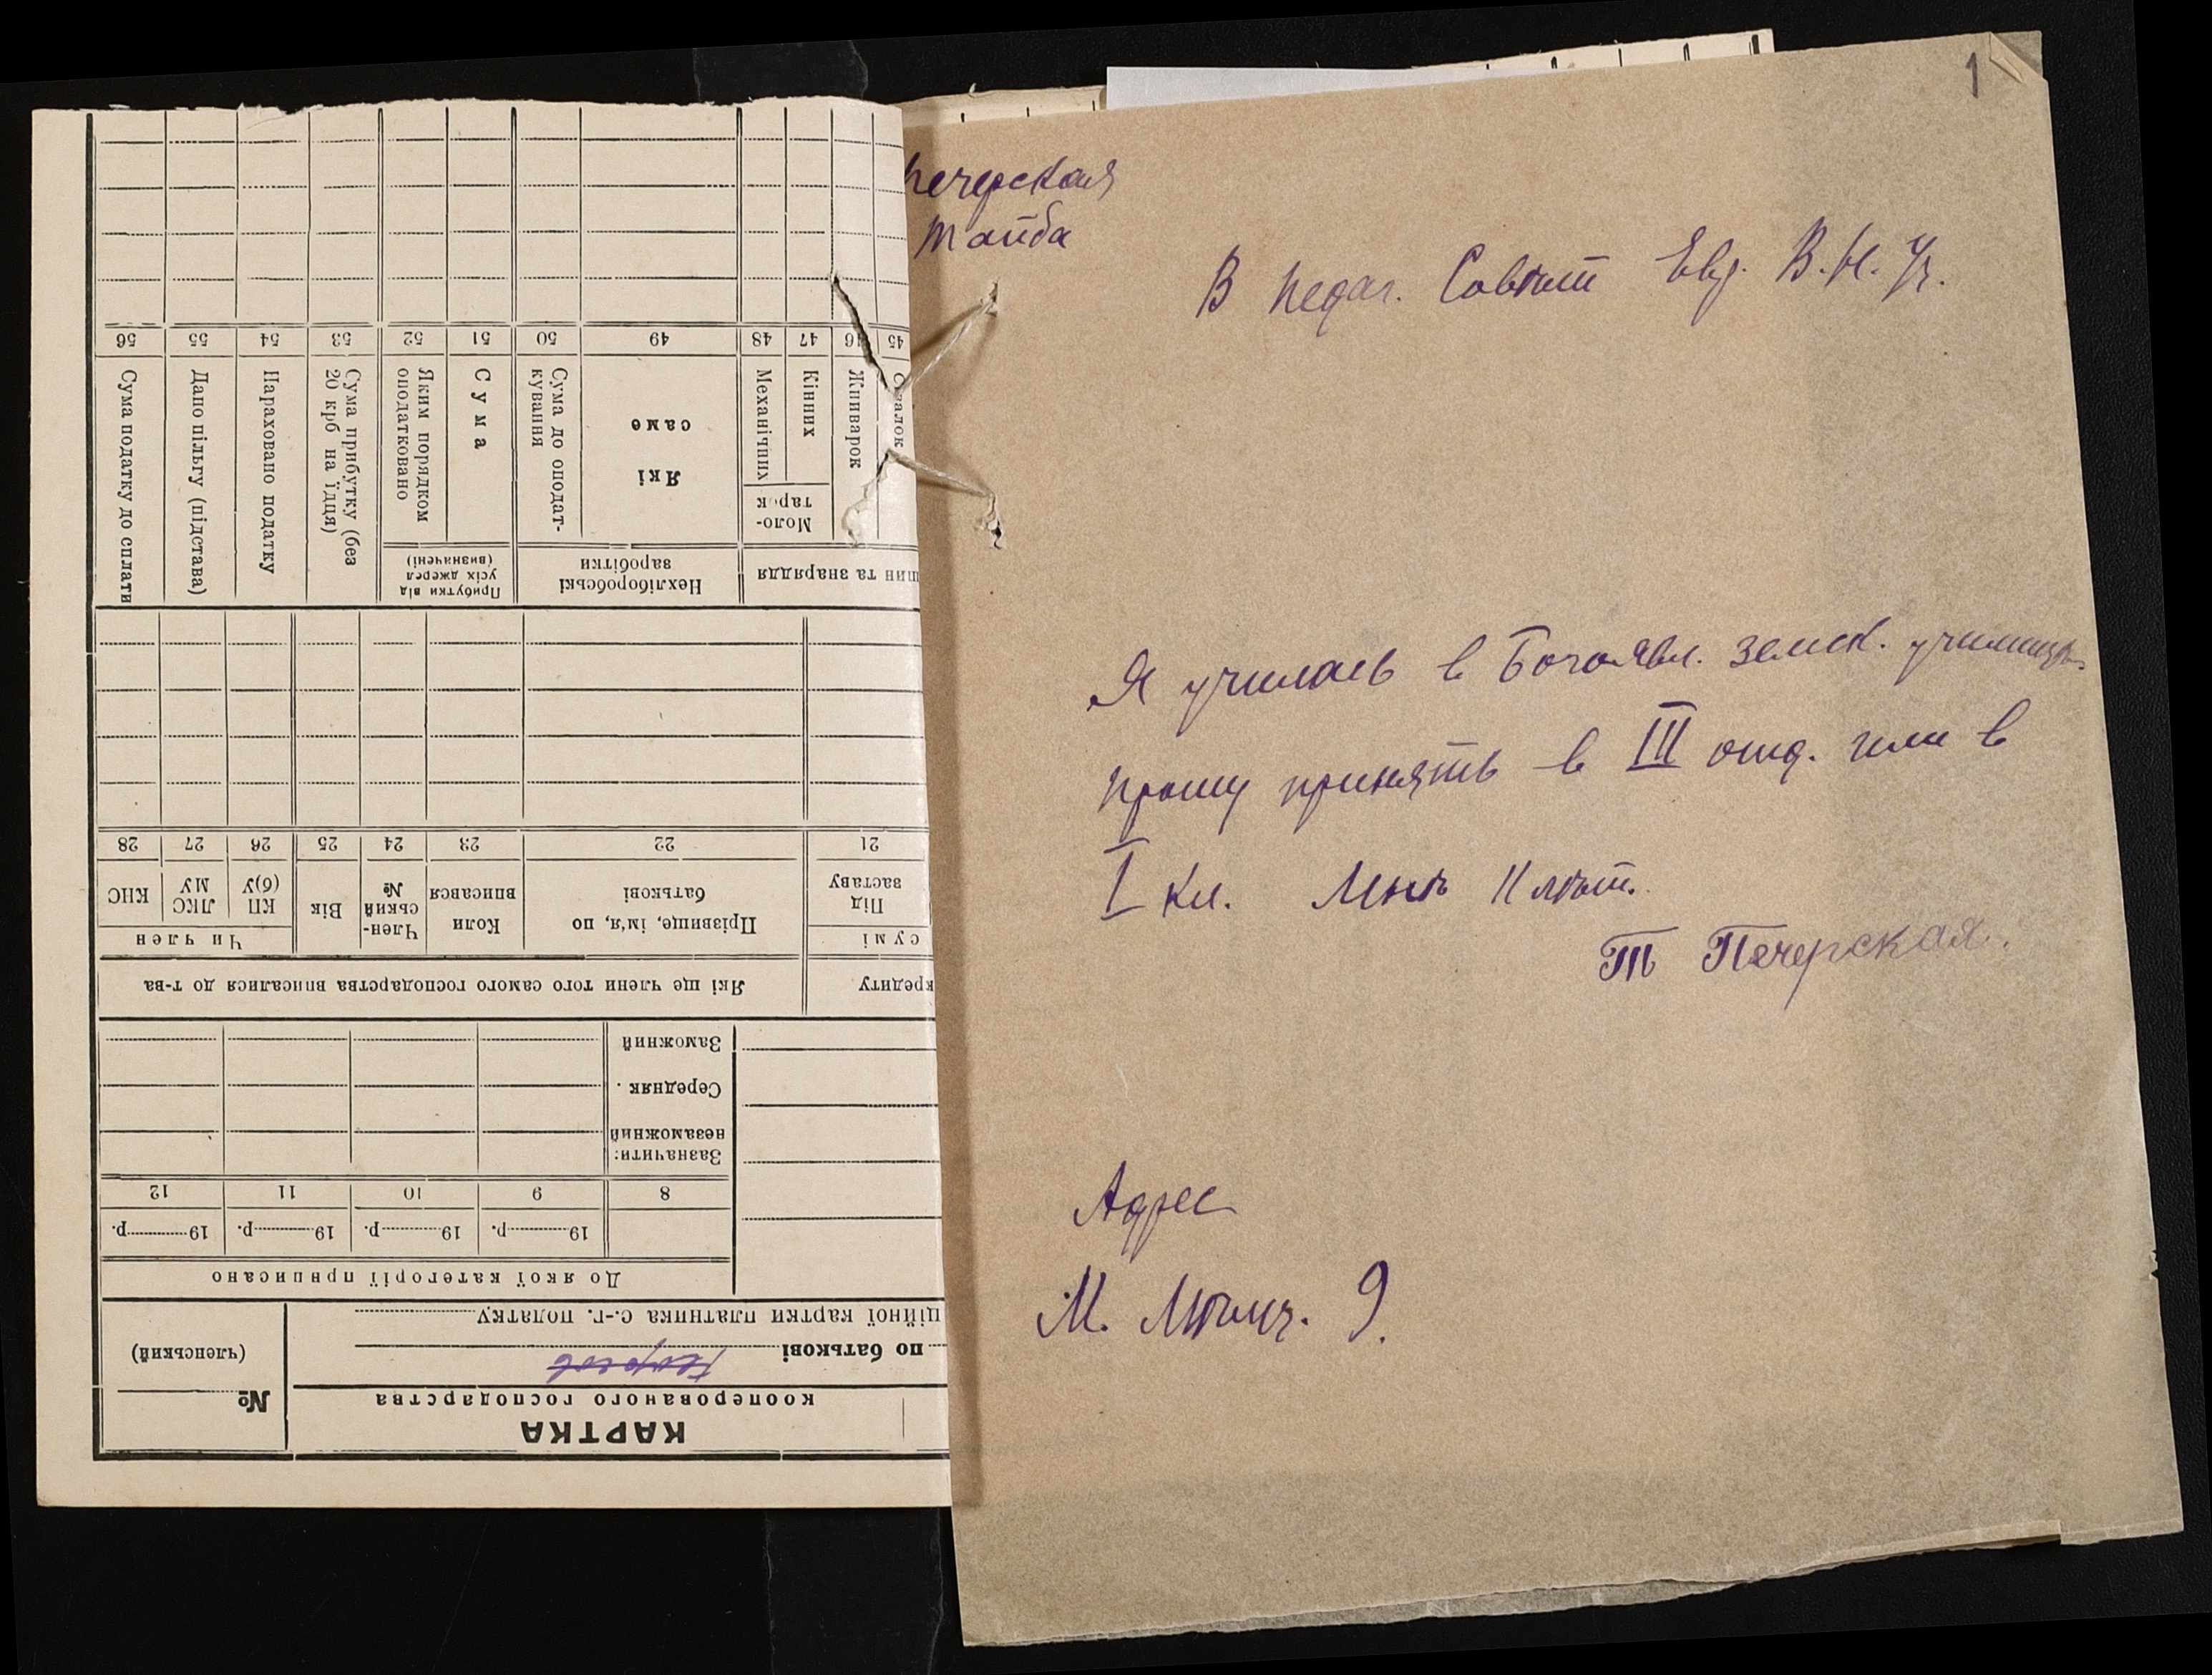 1
Печерская
Тайба
В педаг. Совѣт Евр. В. Н. Уч.
Я училась в Богоявл. земск. училищѣ.
прошу принять в III отд. или в
I кл. Мнѣ 11 лѣт.
Т Печерская.
Адрес
9.
КАРТКА
кооперованого господарства
№
(членський)
по батькові
ційної картки платника с.-г. податку
До якої категорії приписано
19 р.
19 р.
19 р.
19 р.
8
9
10
11
12
Зазначити:
незаможний
Середняк
Заможний
кредиту
Які ще члени того самого господарства вписалися до т-ва
сумі
Під заставу
Прізвище, ім'я, по батькові
Коли вписався
Член-ський №
Вік
Чи член
КП(б)У
ЛКСМУ
КНС
21
22
23
24
25
26
27
28
шин та знаряддя
Нехліборобські заробітки
Прибутки від усіх джерел (визначені)
Моло-
тарок
Жниварок
Кінних
Механічних
Які саме
Сума до оподат-
кування
Сума
Яким порядком
оподатковано
Сума прибутку (без
20 крб на їдця)
Нараховано податку
Дано пільгу (підстава)
Сума податку до сплати
45
46
47
48
49
50
51
52
53
54
55
56